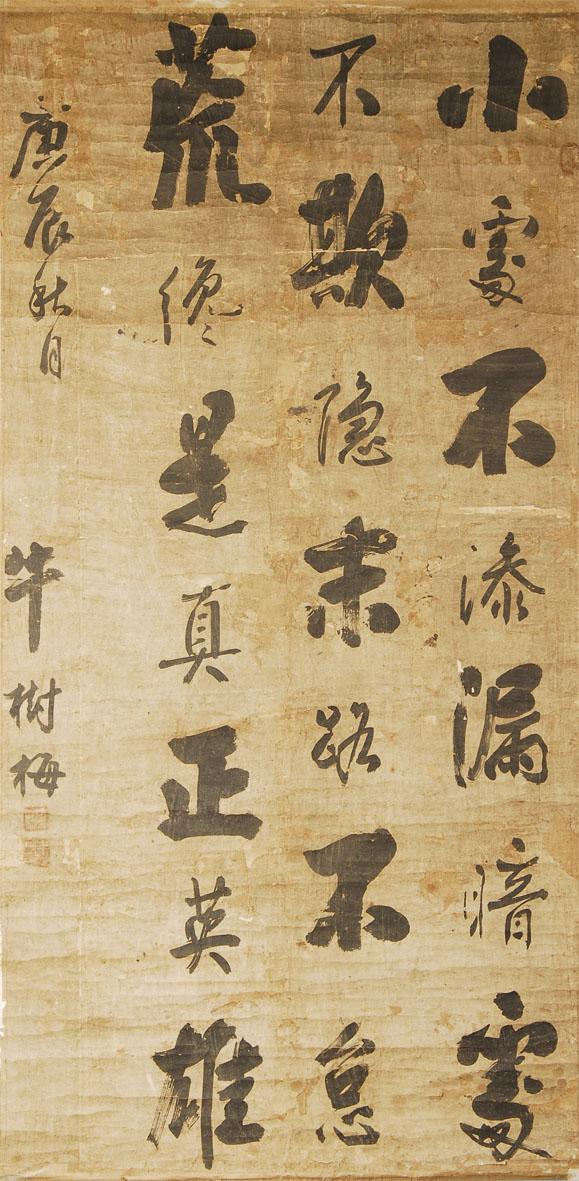 小處不滲漏暗處
不欺隐末路不怠
荒纔是真正英雄
庚辰秋月
牛樹梅